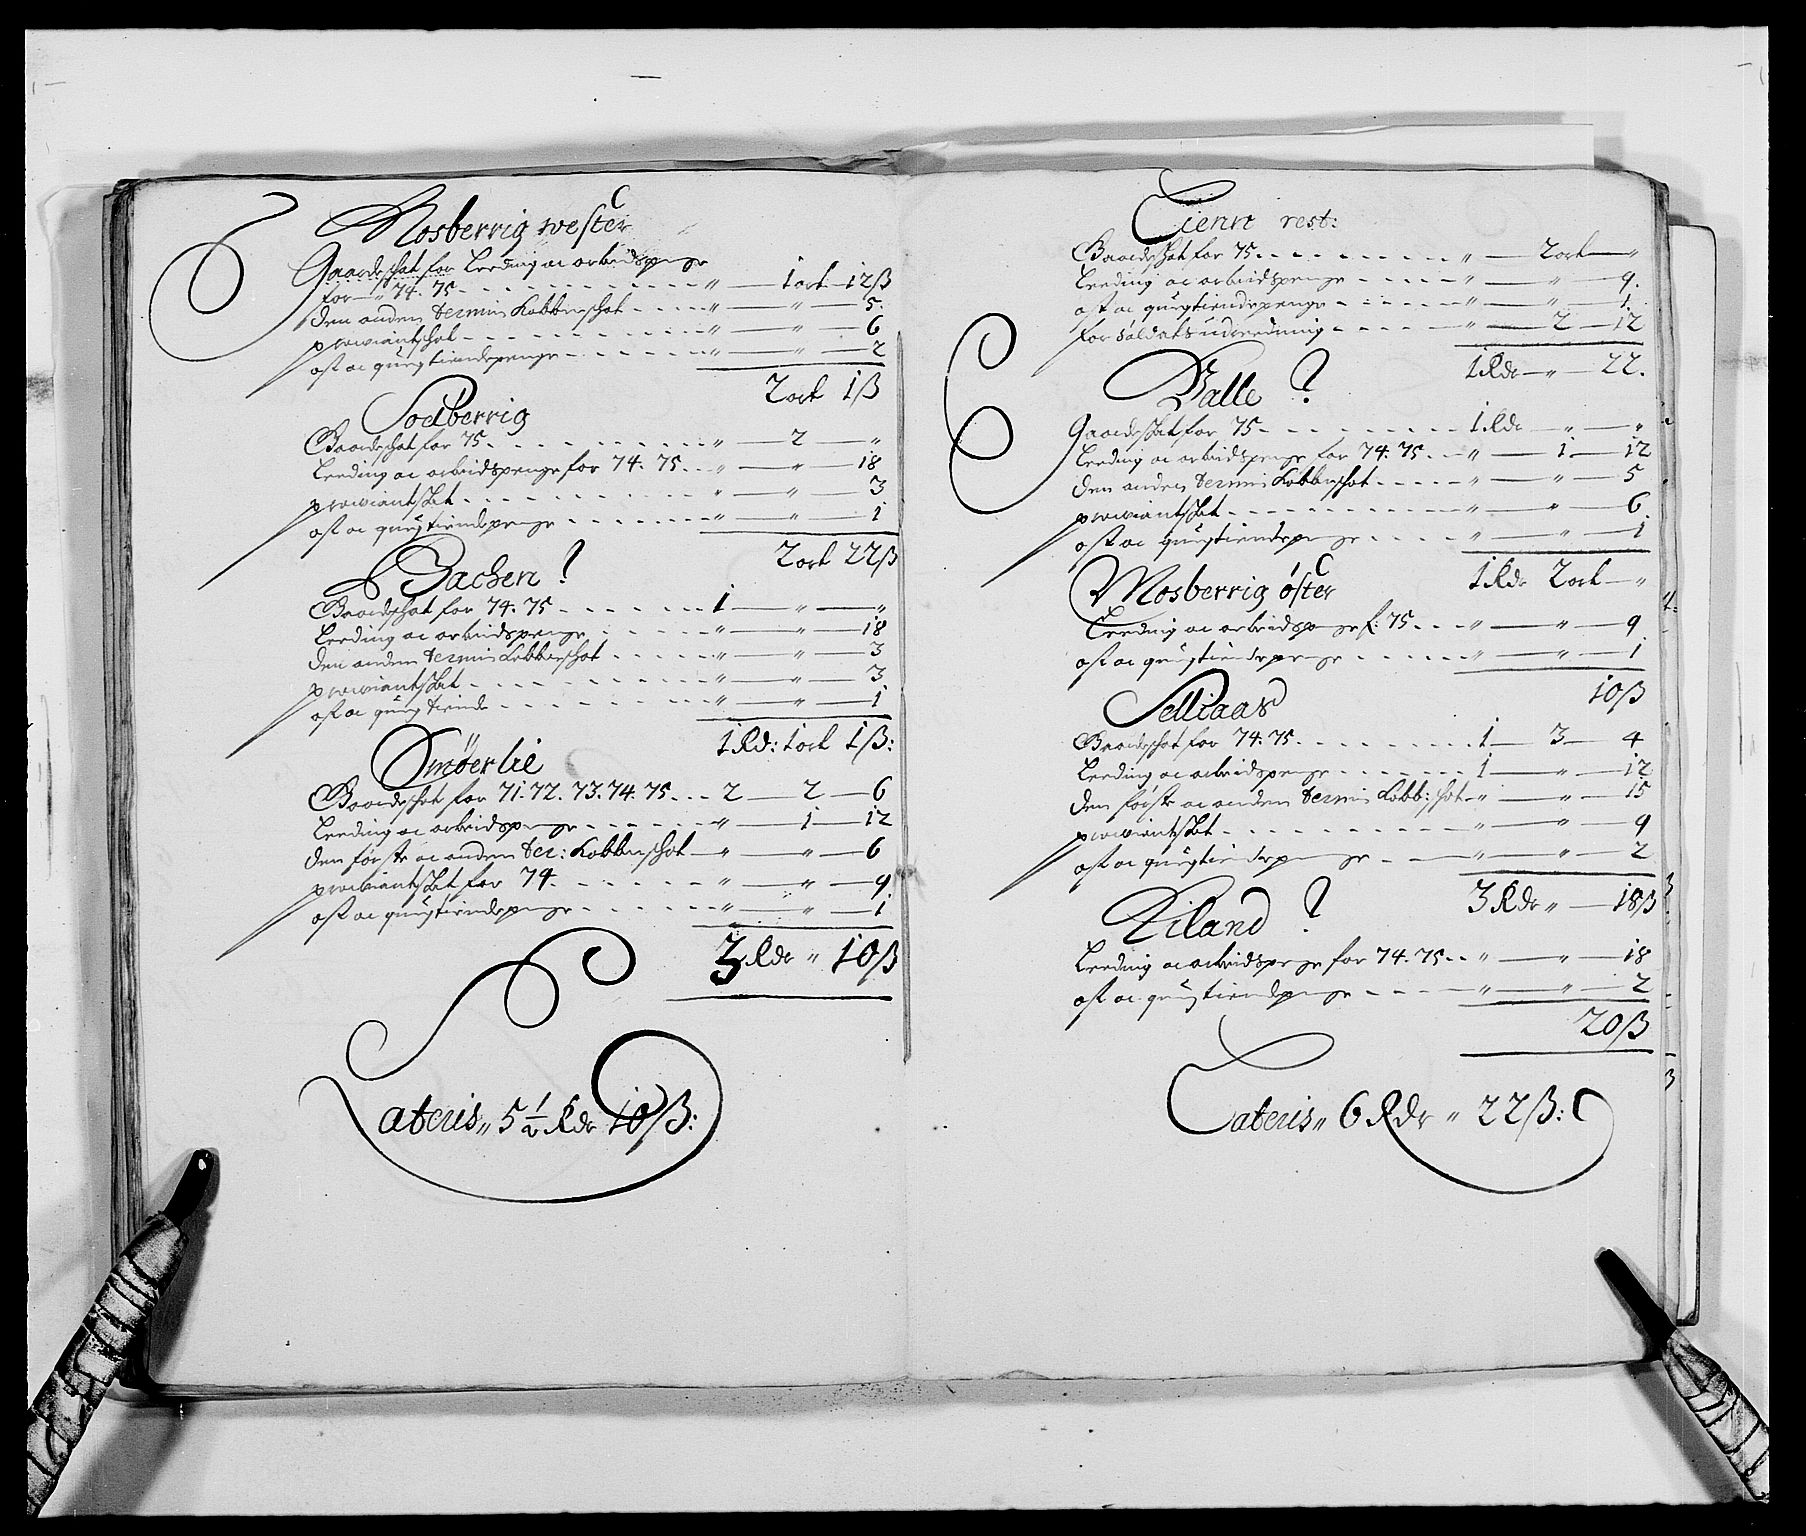 Mosberrig wester
Gaardschat for Leeding oc arbeidspenge
for " 74. 75 " 1 ort 12ß
den anden termin Kobberschat " " 5
proviantschat " " 6
ost oc quegtiendepenge " " 2
2 ort 1ß
Sodberrig
Gaardschat for 75 " 2 "
Leeding oc arbeidspenge for 74. 75 " " 18
proviantschat " " 3
ost oc quegtiendepenge " " 1
2 ort 22ß
Bachen
Gaardschat for 74. 75 1 " "
Leeding oc arbeidspenge " " 18
den anden termin Kobberschat " " 3
proviantschat " " 3
ost oc quegtiende " " 1
1 Rd: 1 ort 1ß:
Smöerlie
Gaardschat for 71. 72. 73. 74. 75 2 2 6
Leeding oc arbeidspenge " 1 12
den förste oc anden ter: Kobberschat " " 6
proviantschat for 74. " " 9
ost oc quegtiendepenge " " 1
3 Rdr " 10ß
Lateris " 5 1/2 Rdr 10ß:
Tienn rest:
Gaardschat for 75 " 2 ort "
Leeding oc arbeidspenge " " 9.
ost oc quegtiendepenge " " 1.
for Soldats udreedning " 2 12
1 Rdr " 22.
Valle
Gaardschat for 75 1. Rdr " "
Leeding oc arbeidspenge for 74. 75 " 1 12
den anden termin Kobberschat " " 5
proviantschat " " 6
ost oc quegtiendepenge " " 1
1 Rdr 2 ort "
Mosberrig öster
Leeding oc arbeidspenge f. 75 " " 9
ost oc quegtiendepenge " " 1
10ß
Selliaas
Gaardschat for 74. 75 1 3 4
Leeding oc arbeidspenge 1 " 12
den förste oc anden termin Kobb: schat " " 15
proviantschat " " 9
ost oc quegtiendepenge " " 2
3 Rdr " 18ß
Eiland
Leeding oc arbeidspenge for 74. 75 " " 18
ost oc quegtiendepenge " " 2
20ß
Lateris " 6 Rdr " 22ß: